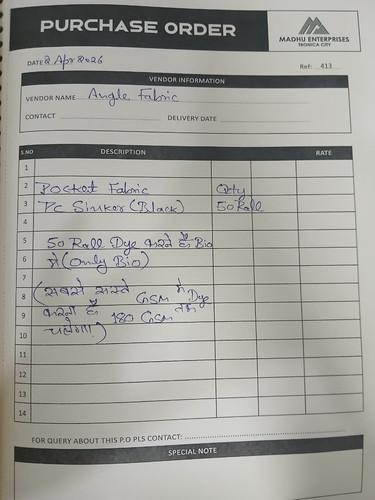 PURCHASE ORDER
MADHU ENTERPRISES
TRONICA CITY
DATE 2 Apr 2026
Ref: 413
VENDOR INFORMATION
VENDOR NAME Angle Fabric
CONTACT DELIVERY DATE
S.NO DESCRIPTION RATE
1
2 Pocket Fabric Qty
3 Pc Sinker (Black) 50 Roll
4
5 50 Roll Dye करने हैं Bio
6 में (Only Bio)
7
8 (सबसे सस्ते GSM में Dye
9 करना है 180 GSM तक
10 चलेगा)
11
12
13
14
FOR QUERY ABOUT THIS P.O PLS CONTACT:
SPECIAL NOTE